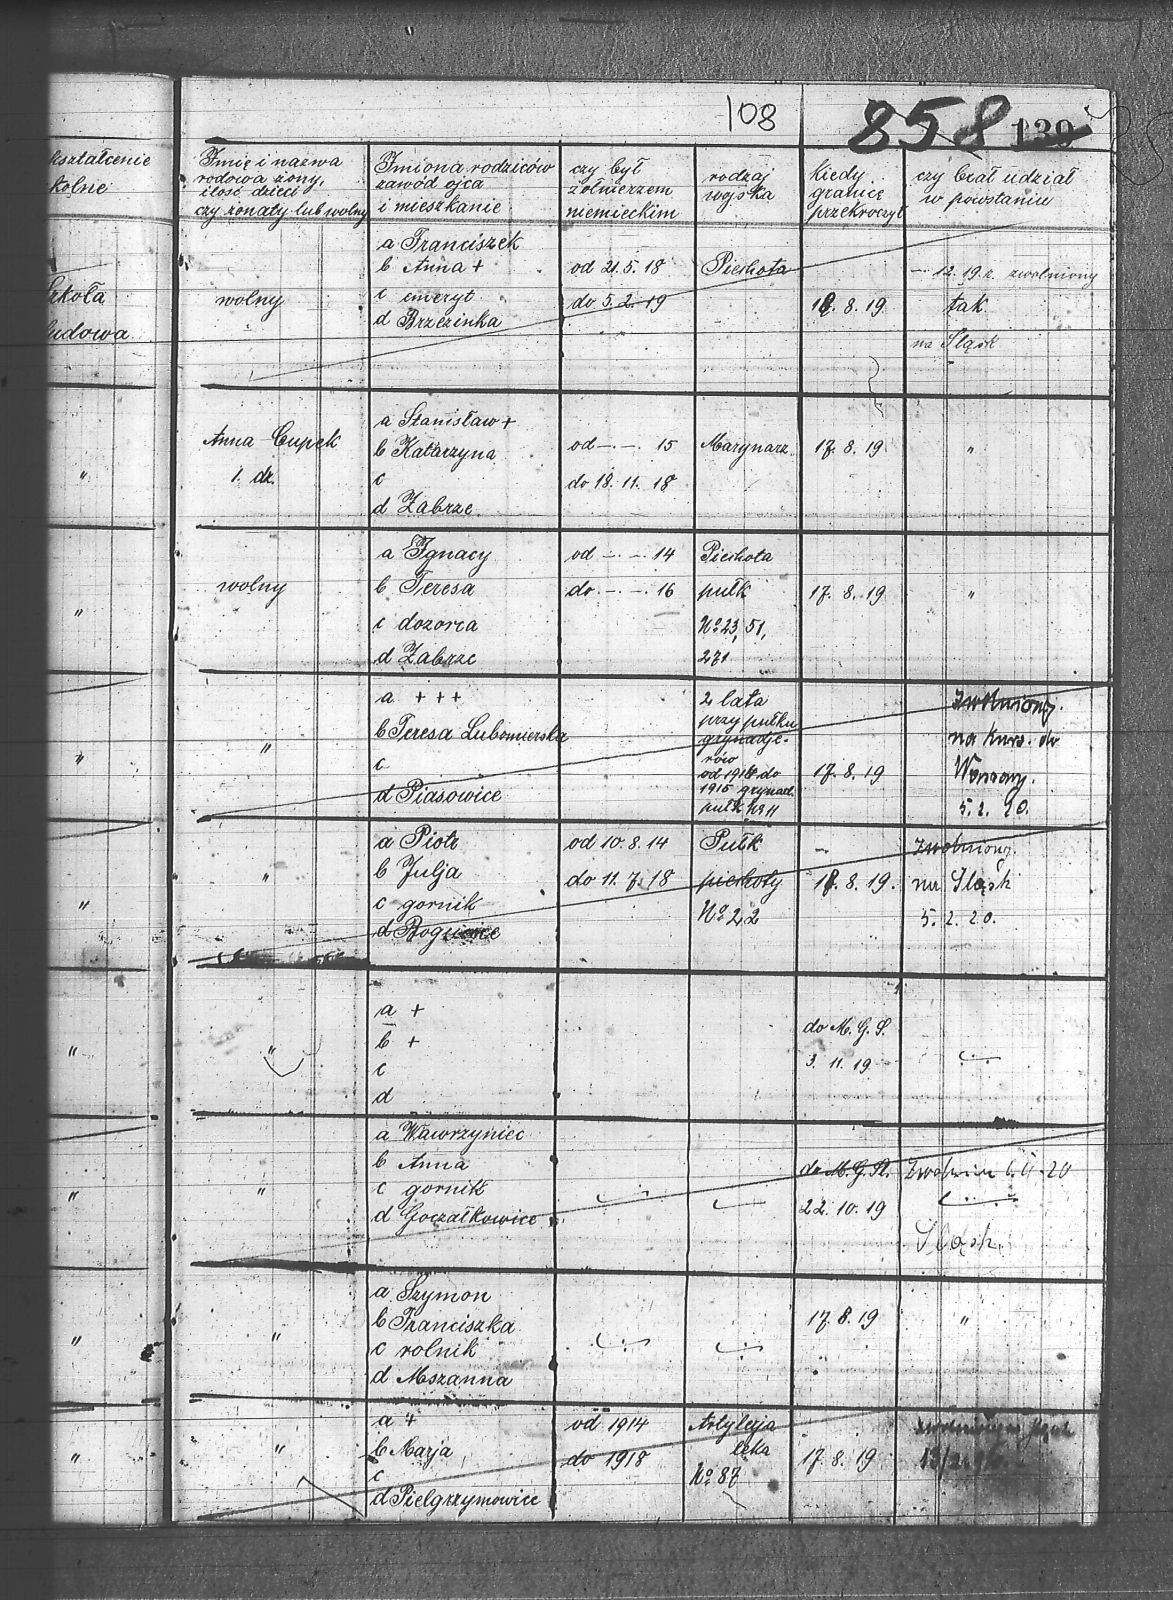 108
858 139
kształcenie
kolne
Imię i nazwa
rodowa żony,
ilość dzieci
czy żonaty lub wolny
Imiona rodziców
zawód ojca
i mieszkanie
czy był
żołnierzem
niemieckim
rodzaj
wojska
kiedy
granicę
przekroczył
czy brał udział
w powstaniu
Szkoła
ludowa
wolny
a Franciszek
b Anna +
c emeryt
d Brzezinka
od 21. 5. 18
do 5. 2. 19
Piechota
18. 8. 19
12. 19 r. zwolniony
tak
na Śląsk
"
Anna Cupek
1. dz.
a Stanisław +
b Katarzyna
c
d Zabrze
od — . — . 15
do 18. 11. 18
Marynarz
17. 8. 19
"
"
wolny
a Ignacy
b Teresa
c dozorca
d Zabrze
od — . — . 14
do — . — . 16
Piechota
pułk
No 23, 51,
271
17. 8. 19
"
"
"
a + + +
b Teresa Lubomierska
c
d Piasowice
2 lata
przy pułku
grynadje-
rów
od 1914 do
1915 grynad.
pułk No 11
17. 8. 19
zwolniony
na kurs. do
5. 2. 20.
"
"
a Piotr
b Julja
c gornik
d
od 10. 8. 14
do 11. 7. 18
Pułk
piechoty
No 22
18. 8. 19.
zwolniony.
na Śląsk
5. 2. 20.
"
"
a +
b +
c
d
do M. G. S.
3. 11. 19
"
"
a Wawrzyniec
b Anna
c gornik
d Goczałkowice
do M. G. R.
22. 10. 19
Śląsk
"
"
a Szymon
b Franciszka
c rolnik
d Mszanna
17. 8. 19
"
"
"
a +
b Marja
c
d Pielgrzymowice
od 1914
do 1918
Artyleja
leka
No 87
17. 8. 19